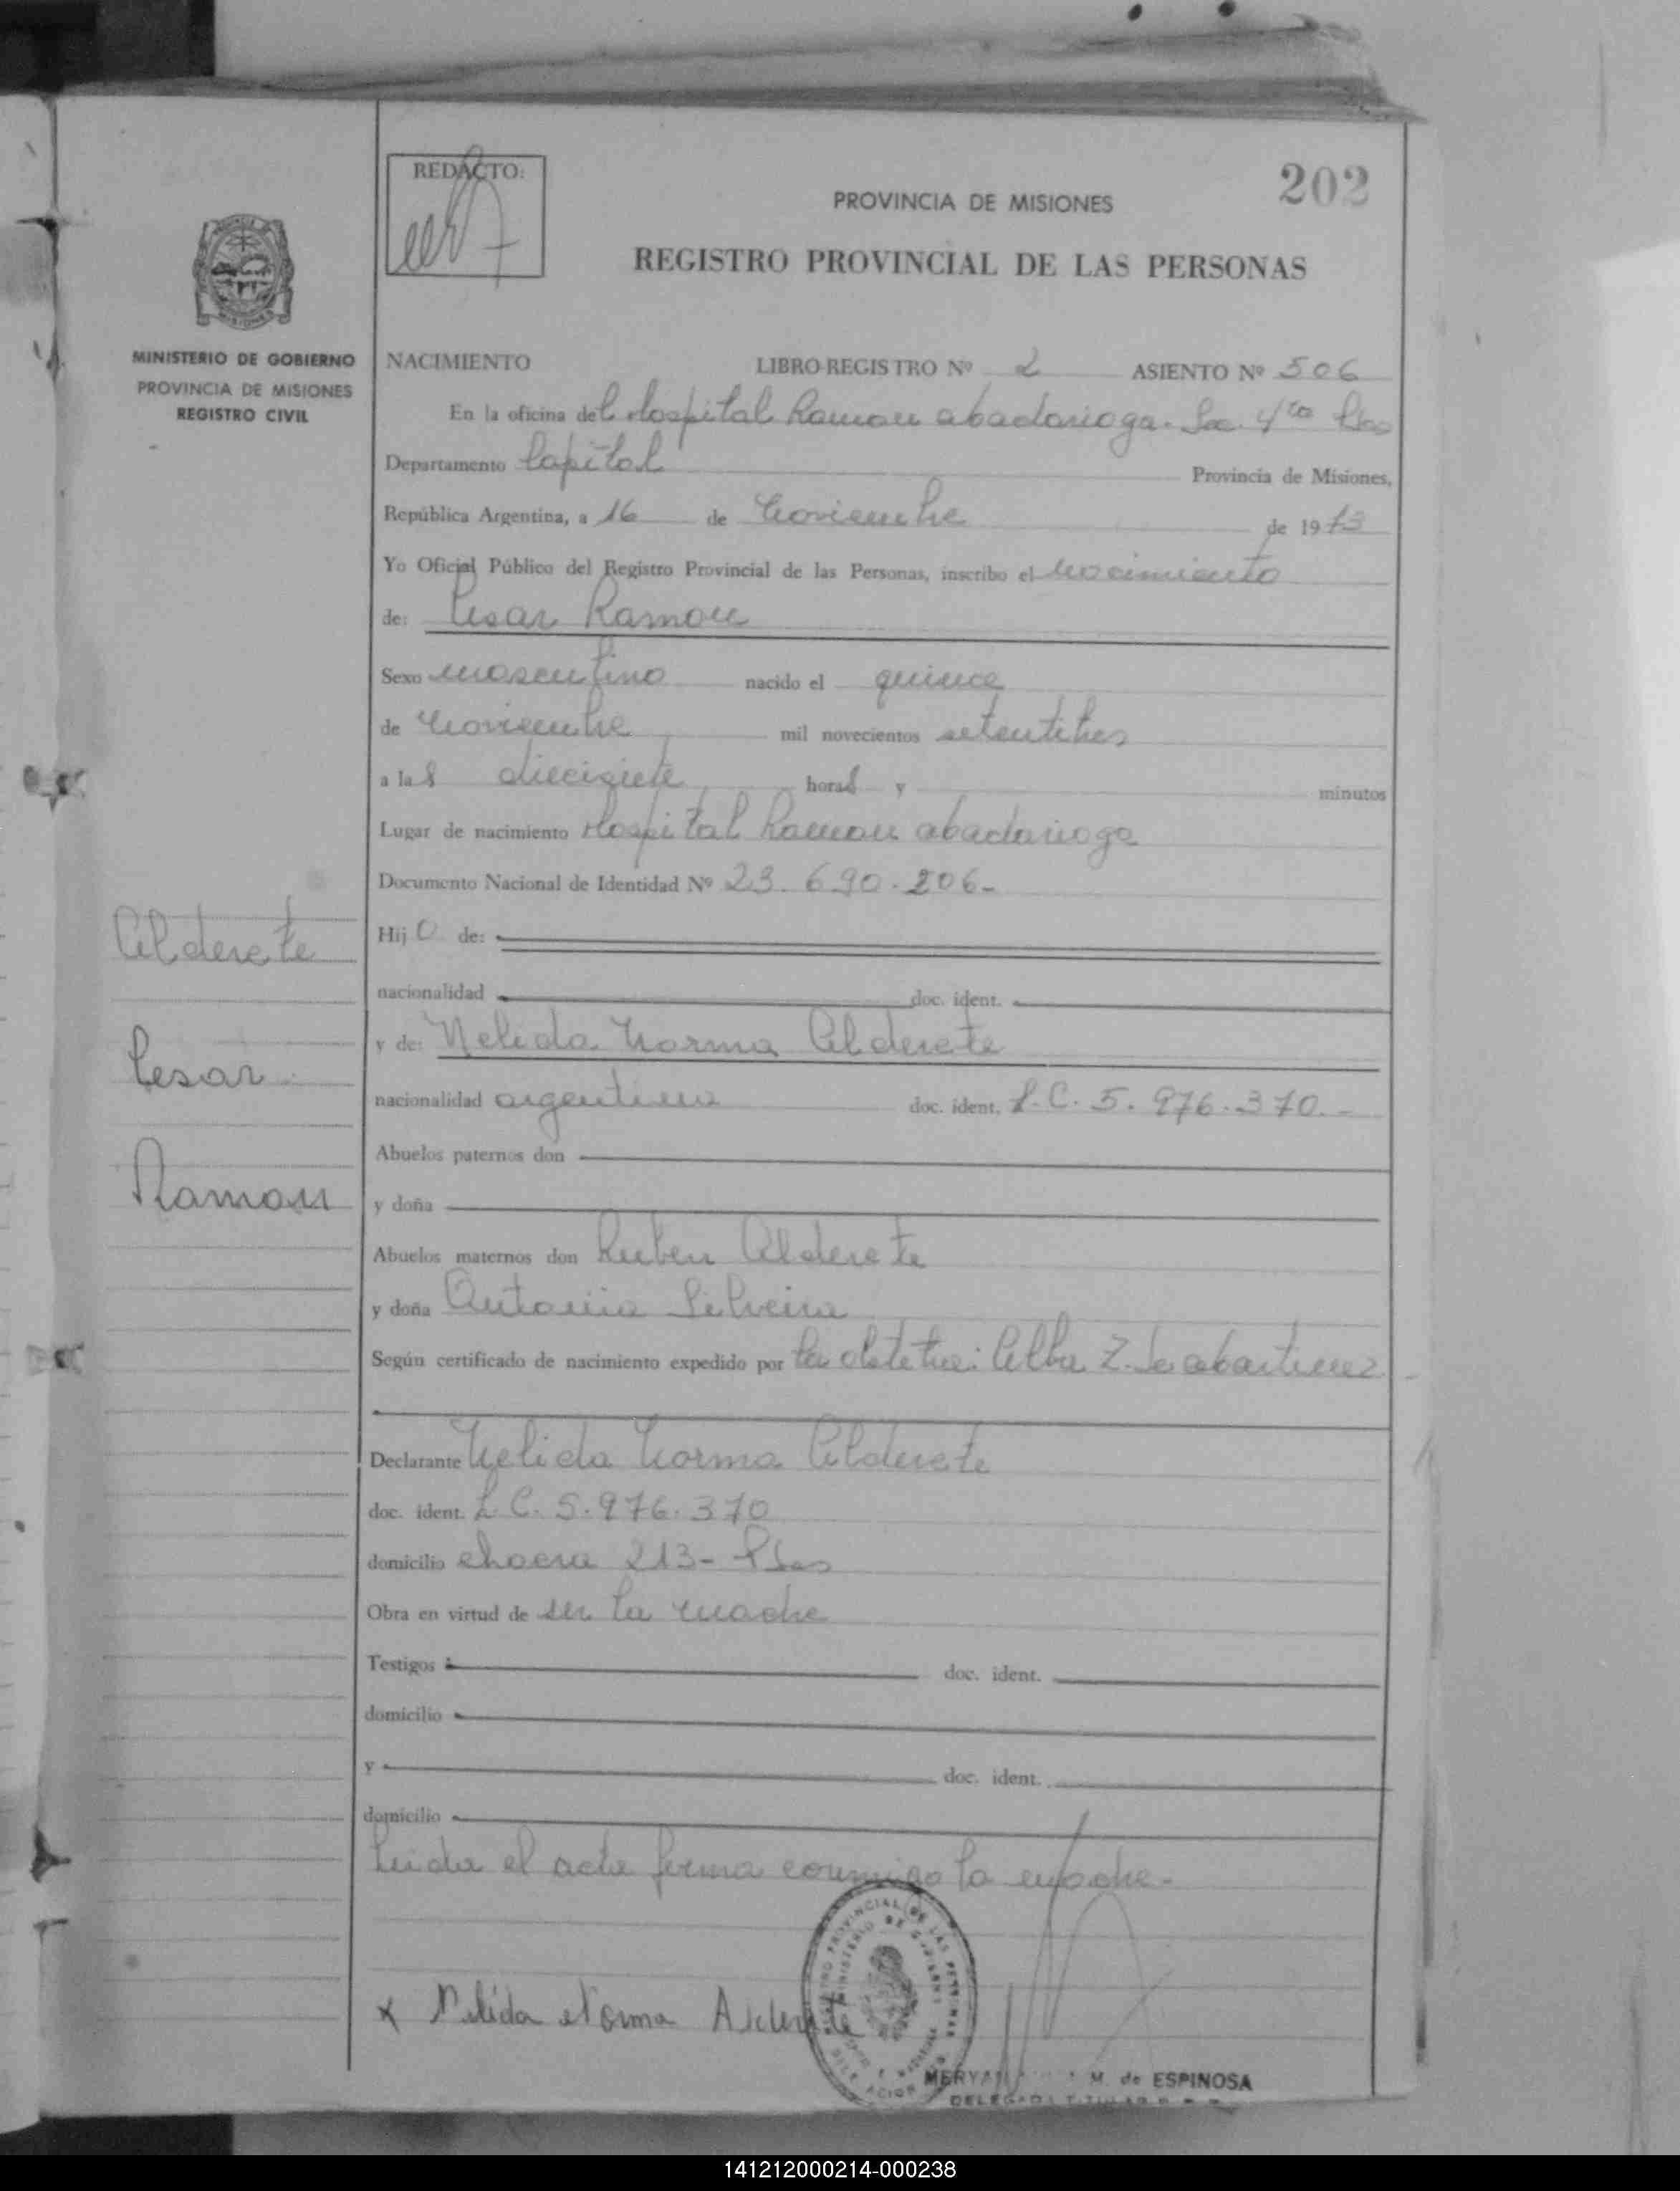 REDACTO:
202
PROVINCIA DE MISIONES
REGISTRO PROVINCIAL DE LAS PERSONAS
MINISTERIO DE GOBIERNO
PROVINCIA DE MISIONES
REGISTRO CIVIL
NACIMIENTO LIBRO REGISTRO Nº 2 ASIENTO Nº 506
En la oficina del Hospital Ramon abadarioga. Sec. 4ta Pdas
Departamento Capital Provincia de Misiones,
República Argentina, a 16 de Noviembre de 1973
Yo Oficial Público del Registro Provincial de las Personas, inscribo el nacimiento
de: Cesar Ramon
Sexo masculino nacido el quince
de Noviembre mil novecientos setentitres
a las diecisiete horas y minutos
Lugar de nacimiento Hospital Ramon abadarioga
Documento Nacional de Identidad Nº 23.690.206-
Alderete
Cesar
Ramon
Hijo de:
nacionalidad doc. ident.
y de: Nelida Norma Alderete
nacionalidad argentina doc. ident. L.C. 5.976.370.-
Abuelos paternos don
y doña
Abuelos maternos don Ruben Alderete
y doña Antonia Silveira
Según certificado de nacimiento expedido por la obstetri: Alba Z.
Declarante Nelida Norma Alderete
doc. ident. L.C. 5.976.370
domicilio chacra 213- Pdas
Obra en virtud de ser la madre
Testigos doc. ident.
domicilio
y doc. ident.
domicilio
Leida el acta firma conmigo la madre.-
x Nelida Norma Alderete
REGISTRO PROVINCIAL DE LAS PERSONAS
MINISTERIO DE GOBIERNO
M. de ESPINOSA
DELEGADA TITULAR
141212000214-000238